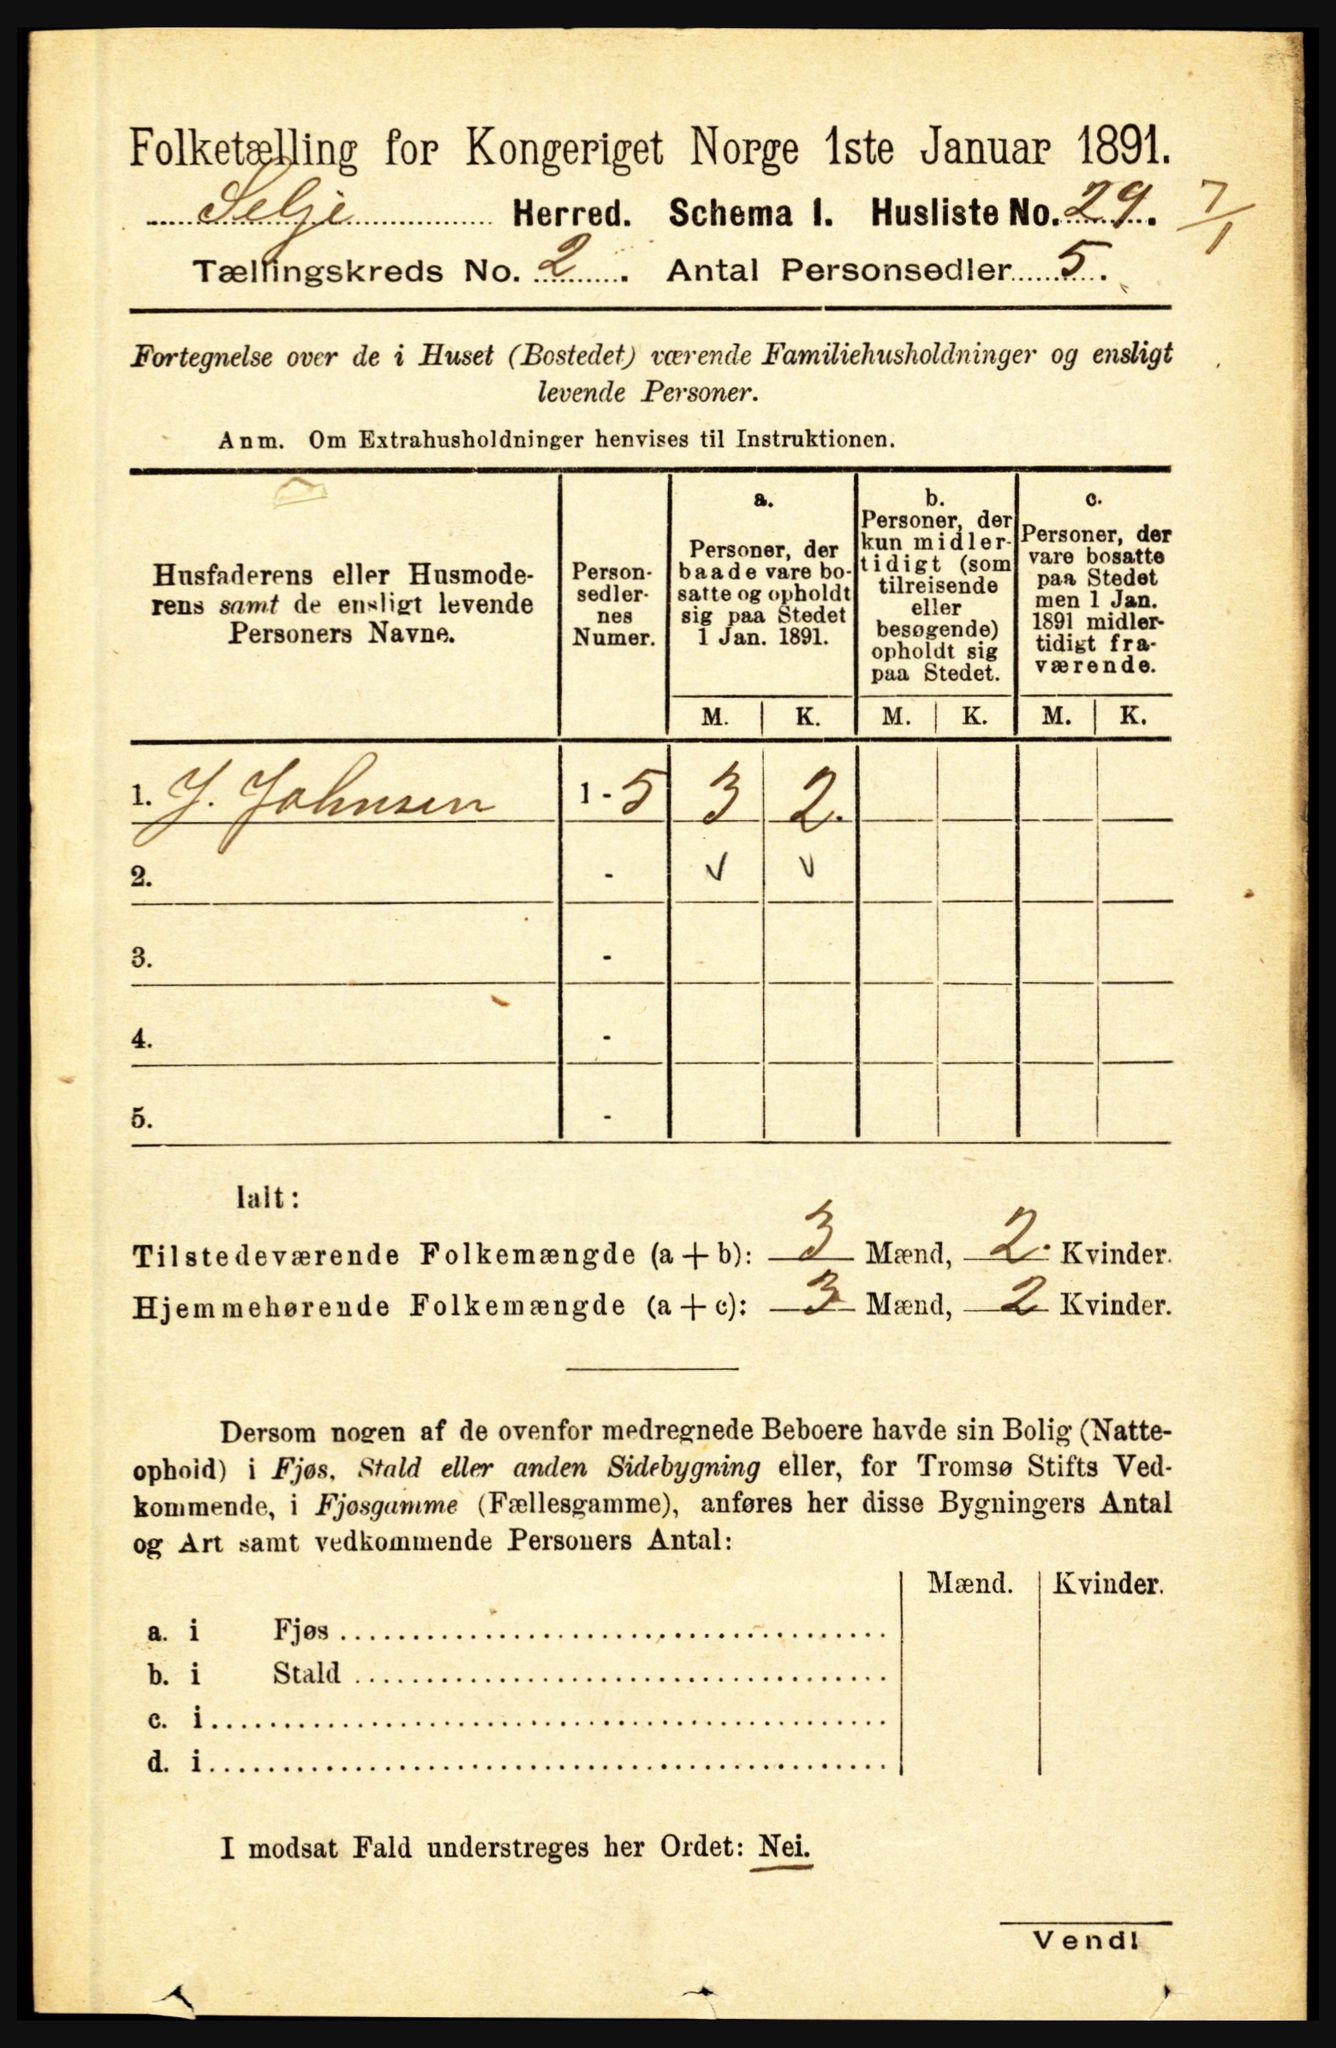 Folketælling for Kongeriget Norge 1ste Januar 1891.
Selje Herred. Schema I. Husliste No. 29. 7/1
Tællingskreds No. 2. Antal Personsedler 5.
Fortegnelse over de i Huset (Bostedet) værende Familiehusholdninger og ensligt
levende Personer.
Anm. Om Extrahusholdninger henvises til Instruktionen.
Husfaderens eller Husmode-
rens samt de ensligt levende
Personers Navne.
Person-
sedler-
nes
Numer.
a.
Personer, der
baade vare bo-
satte og opholdt
sig paa Stedet
1 Jan. 1891.
b.
Personer, der
kun midler-
tidigt (som
tilreisende
eller
besøgende)
opholdt sig
paa Stedet.
c.
Personer, der
vare bosatte
paa Stedet
men 1 Jan.
1891 midler-
tidigt fra-
værende.
M. K. M. K. M. K.
1. J. Johnsen 1 - 5 3 2.
2. - v v
3. -
4. -
5. -
Ialt:
Tilstedeværende Folkemængde (a + b): 3 Mænd, 2. Kvinder.
Hjemmehørende Folkemængde (a + c): 3 Mænd, 2 Kvinder.
Dersom nogen af de ovenfor medregnede Beboere havde sin Bolig (Natte-
ophold) i Fjøs, Stald eller anden Sidebygning eller, for Tromsø Stifts Ved-
kommende, i Fjøsgamme (Fællesgamme), anføres her disse Bygningers Antal
og Art samt vedkommende Personers Antal:
Mænd. Kvinder.
a. i Fjøs
b. i Stald
c. i
d. i
I modsat Fald understreges her Ordet: Nei.
Vend!